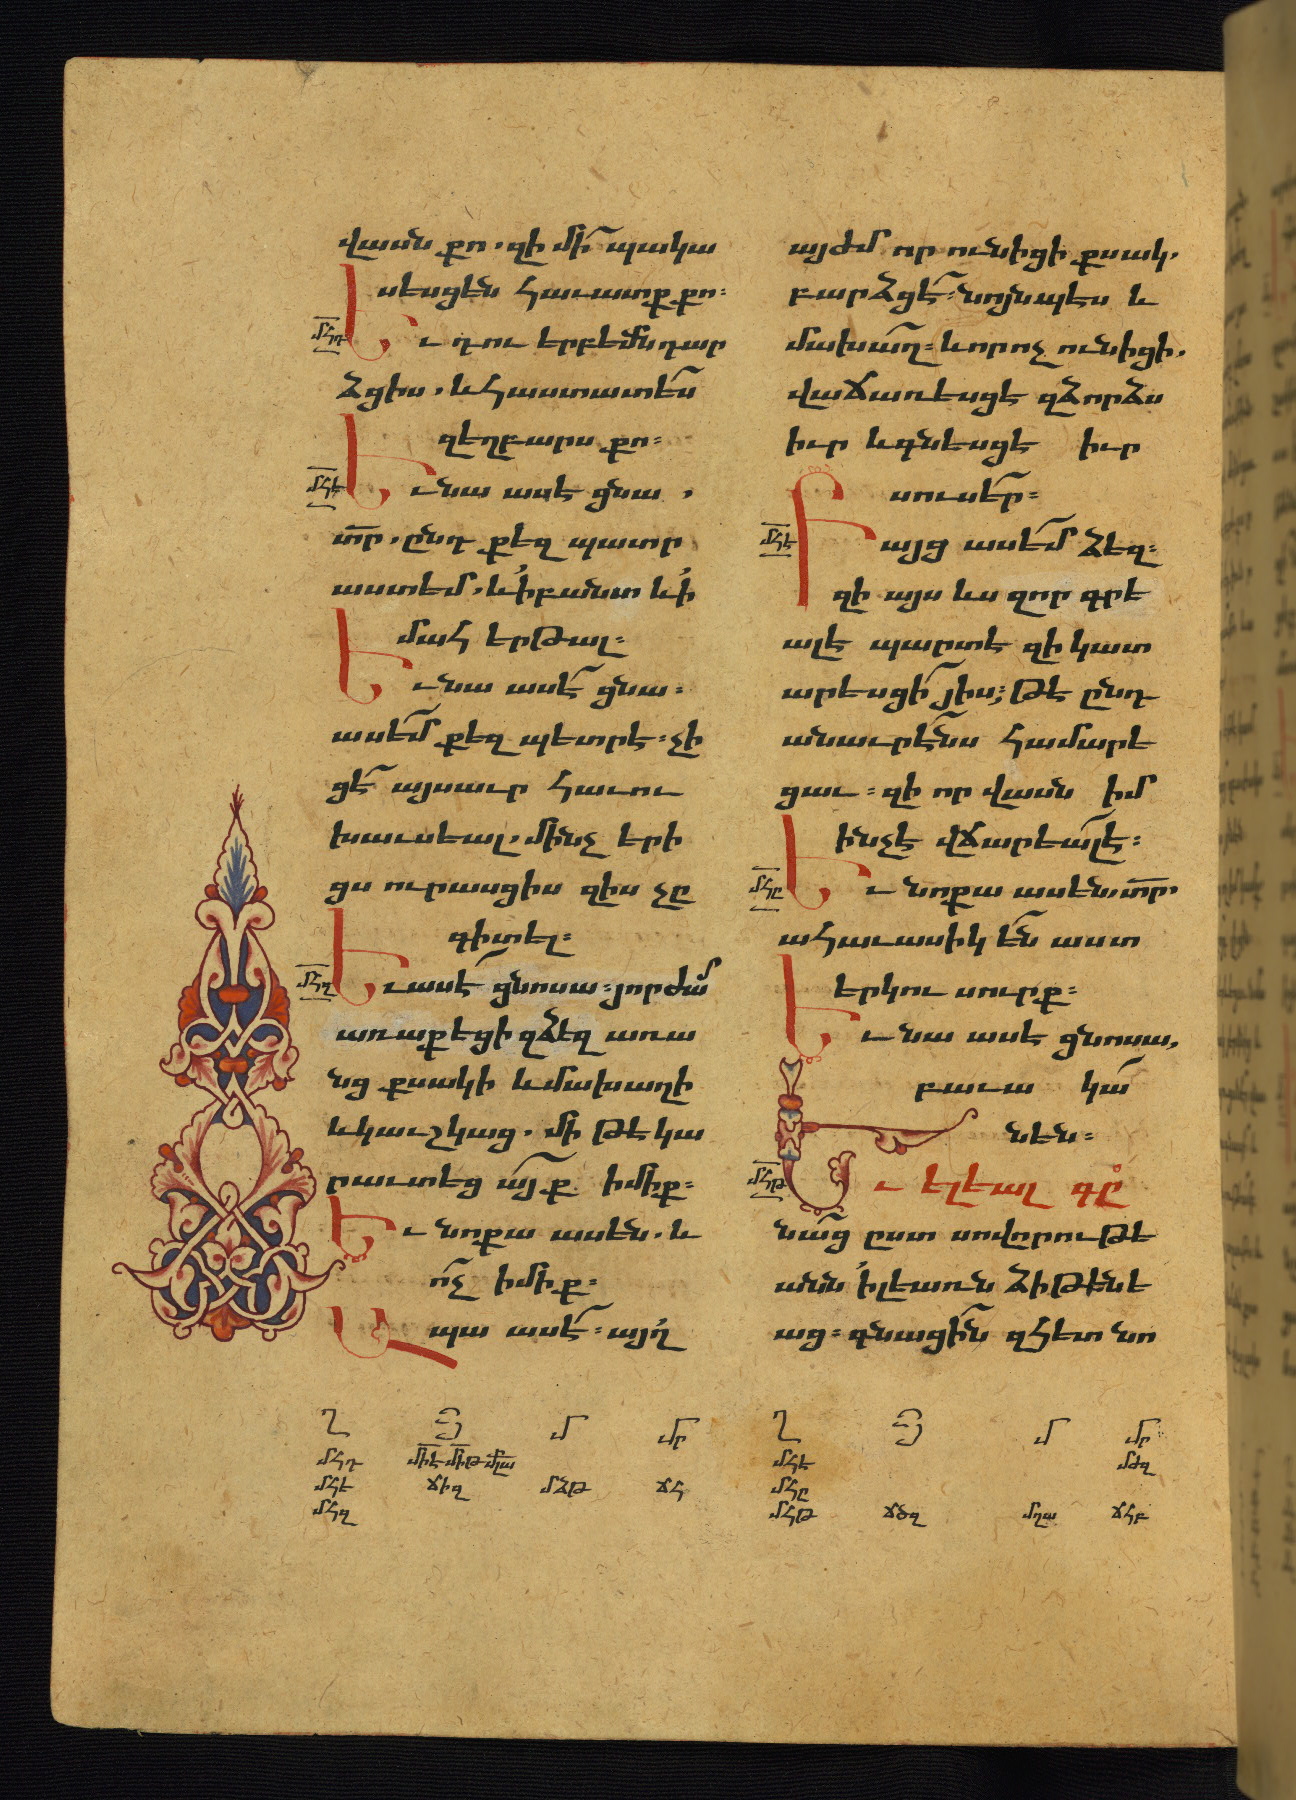 վասն քո. զի մի՛ պակա
սեսցեն հաւատք քո։
մՀդ
Եւ դու երբեմն դար
ձցիս. և հաստատե՛ս
զեղբարս քո։
մՀե
Եւ նա ասէ ցնա.
տ՜ր. ընդ քեզ պատր
աստեմ. և ՛ի բանտ և ՛ի
մահ երթալ։
Եւ նա ասէ՛ ցնա։
ասե՛մ քեզ պետրէ։ չի
ցէ՛ այսաւր հաւու
խաւսեալ. մինչ երի
ցս ուրասցիս զիս չը
գիտել։
մՀզ
Եւ ասէ՛ ցնոսա։ յորժա՛մ
առաքեցի զձեզ առա
նց քսակի և մախաղի
և կաւշկաց. մի թէ կա
րաւտեց ա՛յք իմիք։
Եւ նոքա ասեն. և
ո՛չ իմիք։
Ապա ասէ՛։ այլ
այժմ որ ունիցի քսակ.
բարձցէ՛։ նոյնպէս և
մախա՛ղ։ և որ ոչ ունիցի.
վաճառեսցէ զձորձս
իւր և գնեսցէ իւր
սուսե՛ր։
մՀէ
Բայց ասե՛մ ձեզ։
զի այս ևս զոր գրե
ալէ պարտէ զի կատ
արեսցի՛ յիս։ թէ ընդ
անաւրէ՛նս համարե
ցաւ։ զի որ վասն իմ
ինչէ վճարեա՛լէ։
մՀը
Եւ նոքա ասեն. տ՜ր.
ահաւասիկ ե՛ն աստ
երկու սուրք։
Եւ նա ասէ ցնոսա,
բաւա կա՛
նեն։
մՀթ
Եւ ելեալ գը
նա՛ց ըստ սովորութե
անն ՛ի լեառն ձիթենե
աց։ գնացի՛ն զհետ նո
Ղ Յ մ մր Ղ Յ մ մր
մՀդ մԻե մԻթ մԼա մՀէ մԺզ
մՀե ՃԻզ մՁթ ՃՀ մՀը
մՀզ մՀթ ՃԾզ մՂա ՃՀբ